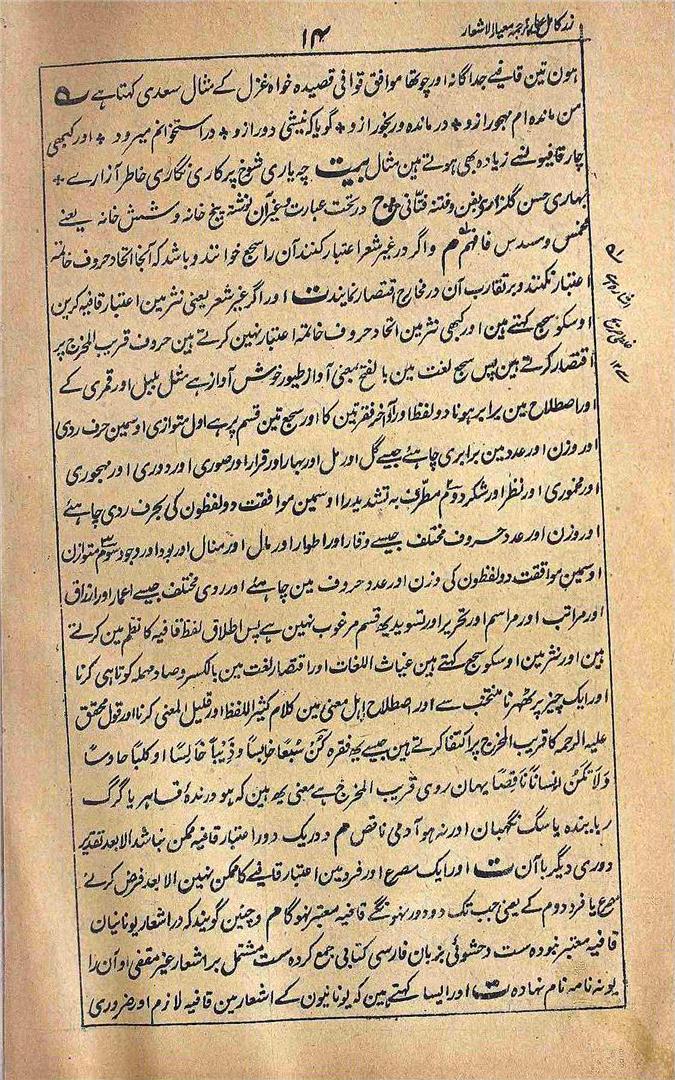 ۱۴
زر کامل عیار ترجمہ معیار الاشعار
ہون تین قافیے جداگانہ اور چوتھا موافق قوافی قصیدہ خواہ غزل کے مثال سعدی کہتا ہے ؎
من ماندہ ام مہجور ازو + درماندہ و رنجور ازو + گویا کہ نیشی دور ازو + در استخوانم میرود + اور کبھی
چار قافیونسے زیادہ بھی ہوتے ہین مثال بیت چہ یاری شوخ پرکاری نگاری خاطر آزارے +
بہاری حسن گلزاری بفن و فتنہ فتانی ح در تحت عبارت و سغیرآن نوشتہ پنج خانہ و شش خانہ یعنے
مخمس و مسدس فافہم م و اگر در غیر شعر اعتبار کنند آن را سجع خوانند و باشد کہ آنجا اتحاد حروف خاتمہ
اعتبار نکنند و بر تقارب آن در مخارج اقتصار نمایند ت اور اگر غیر شعر یعنی نثر مین اعتبار قافیہ کرین
اوسکو سجع کہتے ہین اور کبھی نثر مین اتحاد حروف خاتمہ اعتبار نہین کرتے ہین حروف قریب المخرج پر
اقتصار کرتے ہین پس سجع لغت مین بالفتح بمعنی آواز طیور خوش آواز ہے مثل بلبل اور قمری کے
اور اصطلاح مین برابر ہونا دو لفظ اور آخر فقرتین کا اور سجع تین قسم پر ہے اول متوازی اوسمین حرف ردی
اور وزن اور عدد مین برابری چاہئے جیسے گل اور مل اور بہار اور قرار اور صوری اور دوری اور مہجوری
اور مخموری اور نظر اور شکر دوم مطرف بہ تشدید را اوسمین موافقت دو لفظون کی بحرف ردی چاہئے
اور وزن اور عدد حروف مختلف جیسے وقار اور اطوار اور مال اور منال اور بود اور وجود سوم متوازن
اوسمین موافقت دو لفظون کی وزن اور عدد حروف مین چاہئے اور روی مختلف جیسے اعمار اور ارزاق
اور مراتب اور مراسم اور تحریر اور تسوید یہ قسم مرغوب نہین ہے پس اطلاق لفظ قافیہ کا نظم مین کرتے
ہین اور نثر مین اوسکو سجع کہتے ہین غیاث اللغات اور اقتصار لغت مین بالکسر و صاد مہملہ کوتاہی کرنا
اور ایک چیز پر ٹھہرنا منتخب سے اور اصطلاح اہل معنی مین کلام کثیر اللفظ اور قلیل المعنی کرنا اور قول محقق
علیہ الرحمہ کا قریب المخرج پر اکتفا کرتے ہین جیسے یہ فقرہ کُنْ سَبُعًا خَابِسًا وَ ذِئْبًا خَالِسًا او کلبًا حَارِسًا
وَلَا تَكُنْ اِنْسَانًا نَاقِصًا یہان روی قریب المخرج ہے معنی یہ ہین کہ ہو درندۂ قاہر یا گرگ
ربایندہ یا سگ نگہبان اور نہ ہو آدمی ناقص م و در یک دور اعتبار قافیہ ممکن نباشد الا بعد تقدیر
دوری دیگر با آن ت اور ایک مصرع اور فرد مین اعتبار قافیے کا ممکن نہین الا بعد فرض کرنے
مصرع یا فرد دوم کے یعنی جب تک دو دور نہونگے قافیہ معتبر نہوگا م و چنین گویند کہ در اشعار یونانیان
قافیہ معتبر نبودہ ست و حشوئی بزبان فارسی کتابی جمع کردہ ست مشتمل بر اشعار غیر مقفی و آن را
یونہ نامہ نام نہادہ ت اور ایسا کہتے ہین کہ یونانیون کے اشعار مین قافیہ لازم اور ضروری